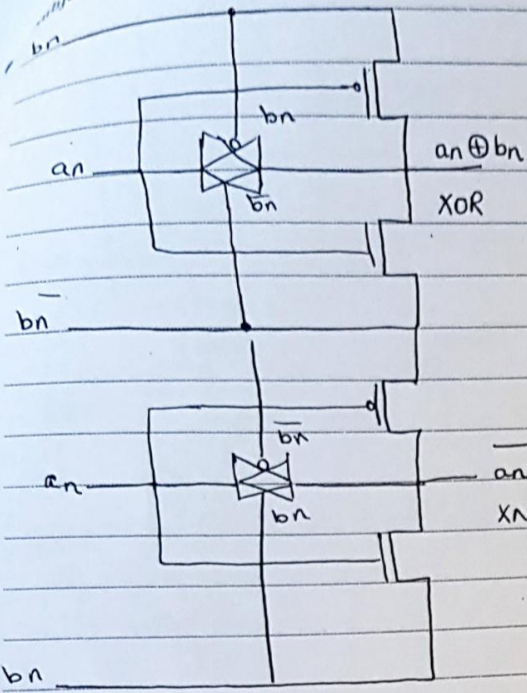 bn
bn
an
an⊕bn
b̅n̅
XOR
b̅n̅
b̅n̅
an
a̅n̅
bn
XN
bn